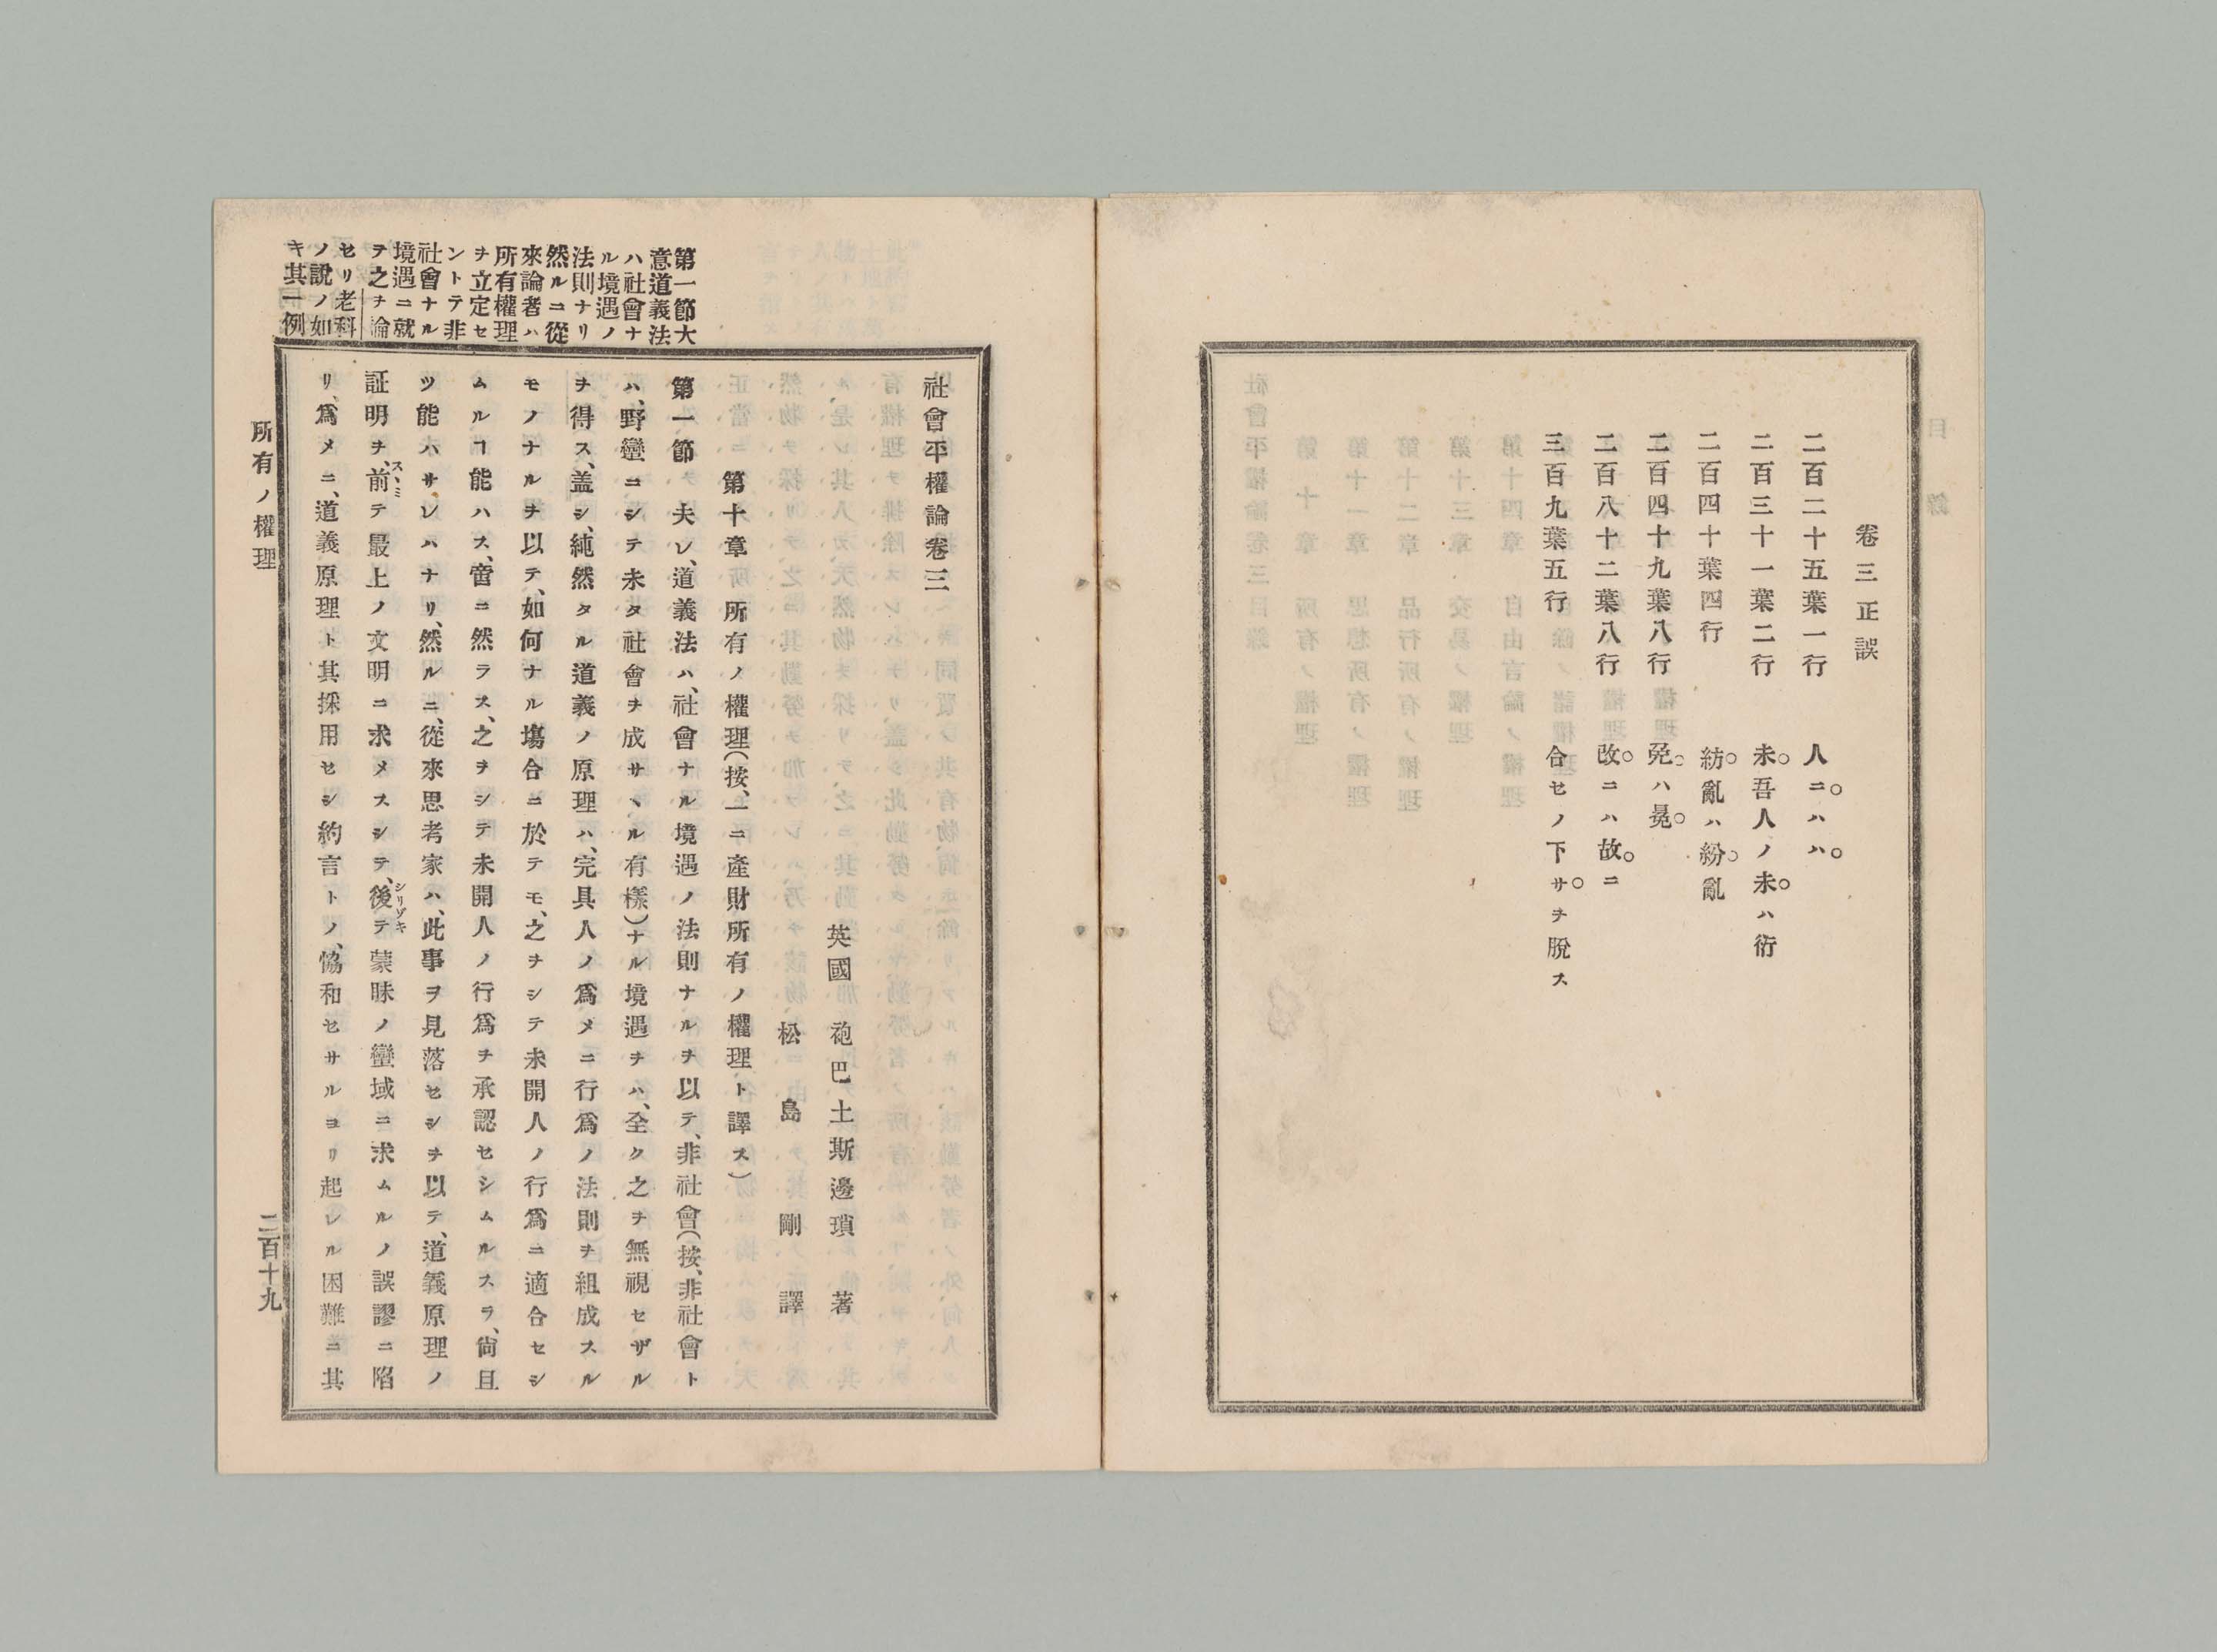 卷三正誤
二百二十五葉一行　人ニハハ
二百三十一葉二行　未吾人ノ未ハ衍
二百四十葉四行　紡亂ハ紛亂
二百四十九葉八行　𠒋ハ晃
二百八十二葉八行　改ニハ故ニ
三百九葉五行　合セノ下サヲ脫ス
社會平權論卷三
英國　袍巴土斯邊瑣　著
松島剛　譯
第十章　所有ノ權理(按、一ニ產財所有ノ權理ト譯ス)
第一節　夫レ、道義法ハ、社會ナル境遇ノ法則ナルヲ以テ、非社會(按、非社會ト
ハ、野蠻ニシテ未タ社會ヲ成サヽル有樣)ナル境遇ヲハ、全ク之ヲ無視セザル
ヲ得ス、盖シ、純然タル道義ノ原理ハ、完具人ノ爲メニ行爲ノ法則ヲ組成スル
モノナルヲ以テ、如何ナル塲合ニ於テモ、之ヲシテ未開人ノ行爲ニ適合セシ
ムルヿ能ハス、啻ニ然ラス、之ヲシテ未開人ノ行爲ヲ承認セシムルスラ、尙且
ツ能ハサレハナリ、然ルニ、從來思考家ハ、此事ヲ見落セシヲ以テ、道義原理ノ
証明ヲ、前スヽミテ最上ノ文明ニ求メスシテ、後シリゾキテ蒙昧ノ蠻域ニ求ムルノ誤謬ニ陷
リ、爲メニ、道義原理ト其採用セシ約言トノ、恊和セサルヨリ起レル困難ニ其
第一節大
意道義法
ハ社會ナ
ル境遇ノ
法則ナリ
然ルニ從
來論者ハ
所有權理
ヲ立定セ
ントテ非
社會ナル
境遇ニ就
テ之ヲ論
セリ老科
ノ說ノ如
キ其一例
所有ノ權理
二百十九